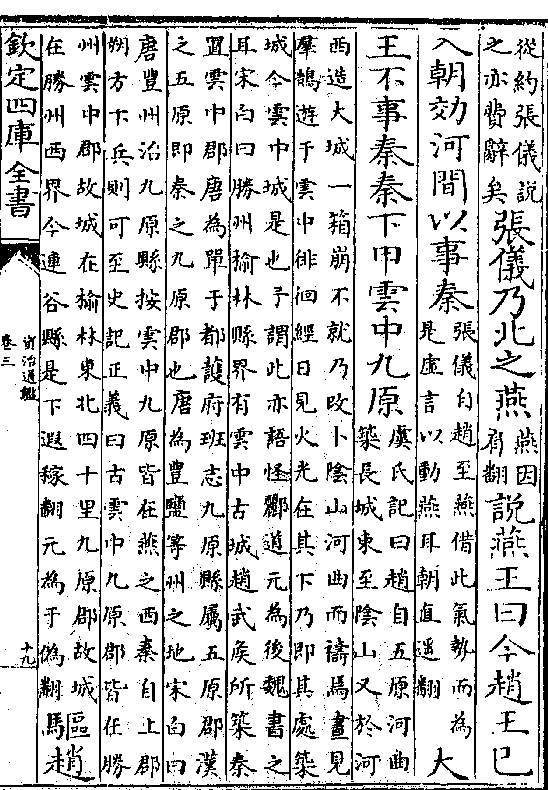 從約張儀說
之亦費辭矣
張儀乃北之燕
燕因
肩翻
說燕王曰今趙王已
入朝効河間以事秦
張儀自趙至燕借此氣勢而為
是虛言以動燕耳朝直遙翻
大
王不事秦秦下甲雲中九原
虞氏記曰趙自五原河曲
築長城東至隂山又於河
西造大城一箱崩不就乃改卜隂山河曲而禱焉晝見
羣鵠遊于雲中徘徊經日見火光在其下乃即其處築
城今雲中城是也予謂此亦語怪酈道元為後魏書之
耳宋白曰勝州榆林縣界有雲中古城趙武侯所築秦
置雲中郡唐為單于都護府班志九原縣屬五原郡漢
之五原即秦之九原郡也唐為豐鹽等州之地宋白曰
唐豐州治九原縣按雲中九原皆在燕之西秦自上郡
朔方下兵則可至史記正義曰古雲中九原郡皆在勝
州雲中郡故城在榆林東北四十里九原郡故城
在勝州西界今連谷縣是下遐稼翻元為于偽翻
驅趙
欽定四庫全書
資治通鑑
卷三
十九